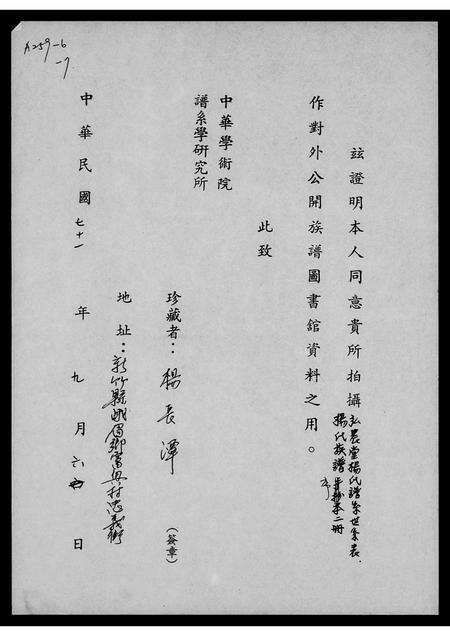 A259-6
-7
茲證明本人同意貴所拍攝弘農堂楊氏譜系世系表.
楊氏族譜手抄本二冊
作對外公開族譜圖書舘資料之用。
此致
中華學術院
譜系學研究所
珍藏者：楊長潭
(簽章)
地址：新竹縣峨眉鄉富興村忠義街
中華民國七十一年九月六日